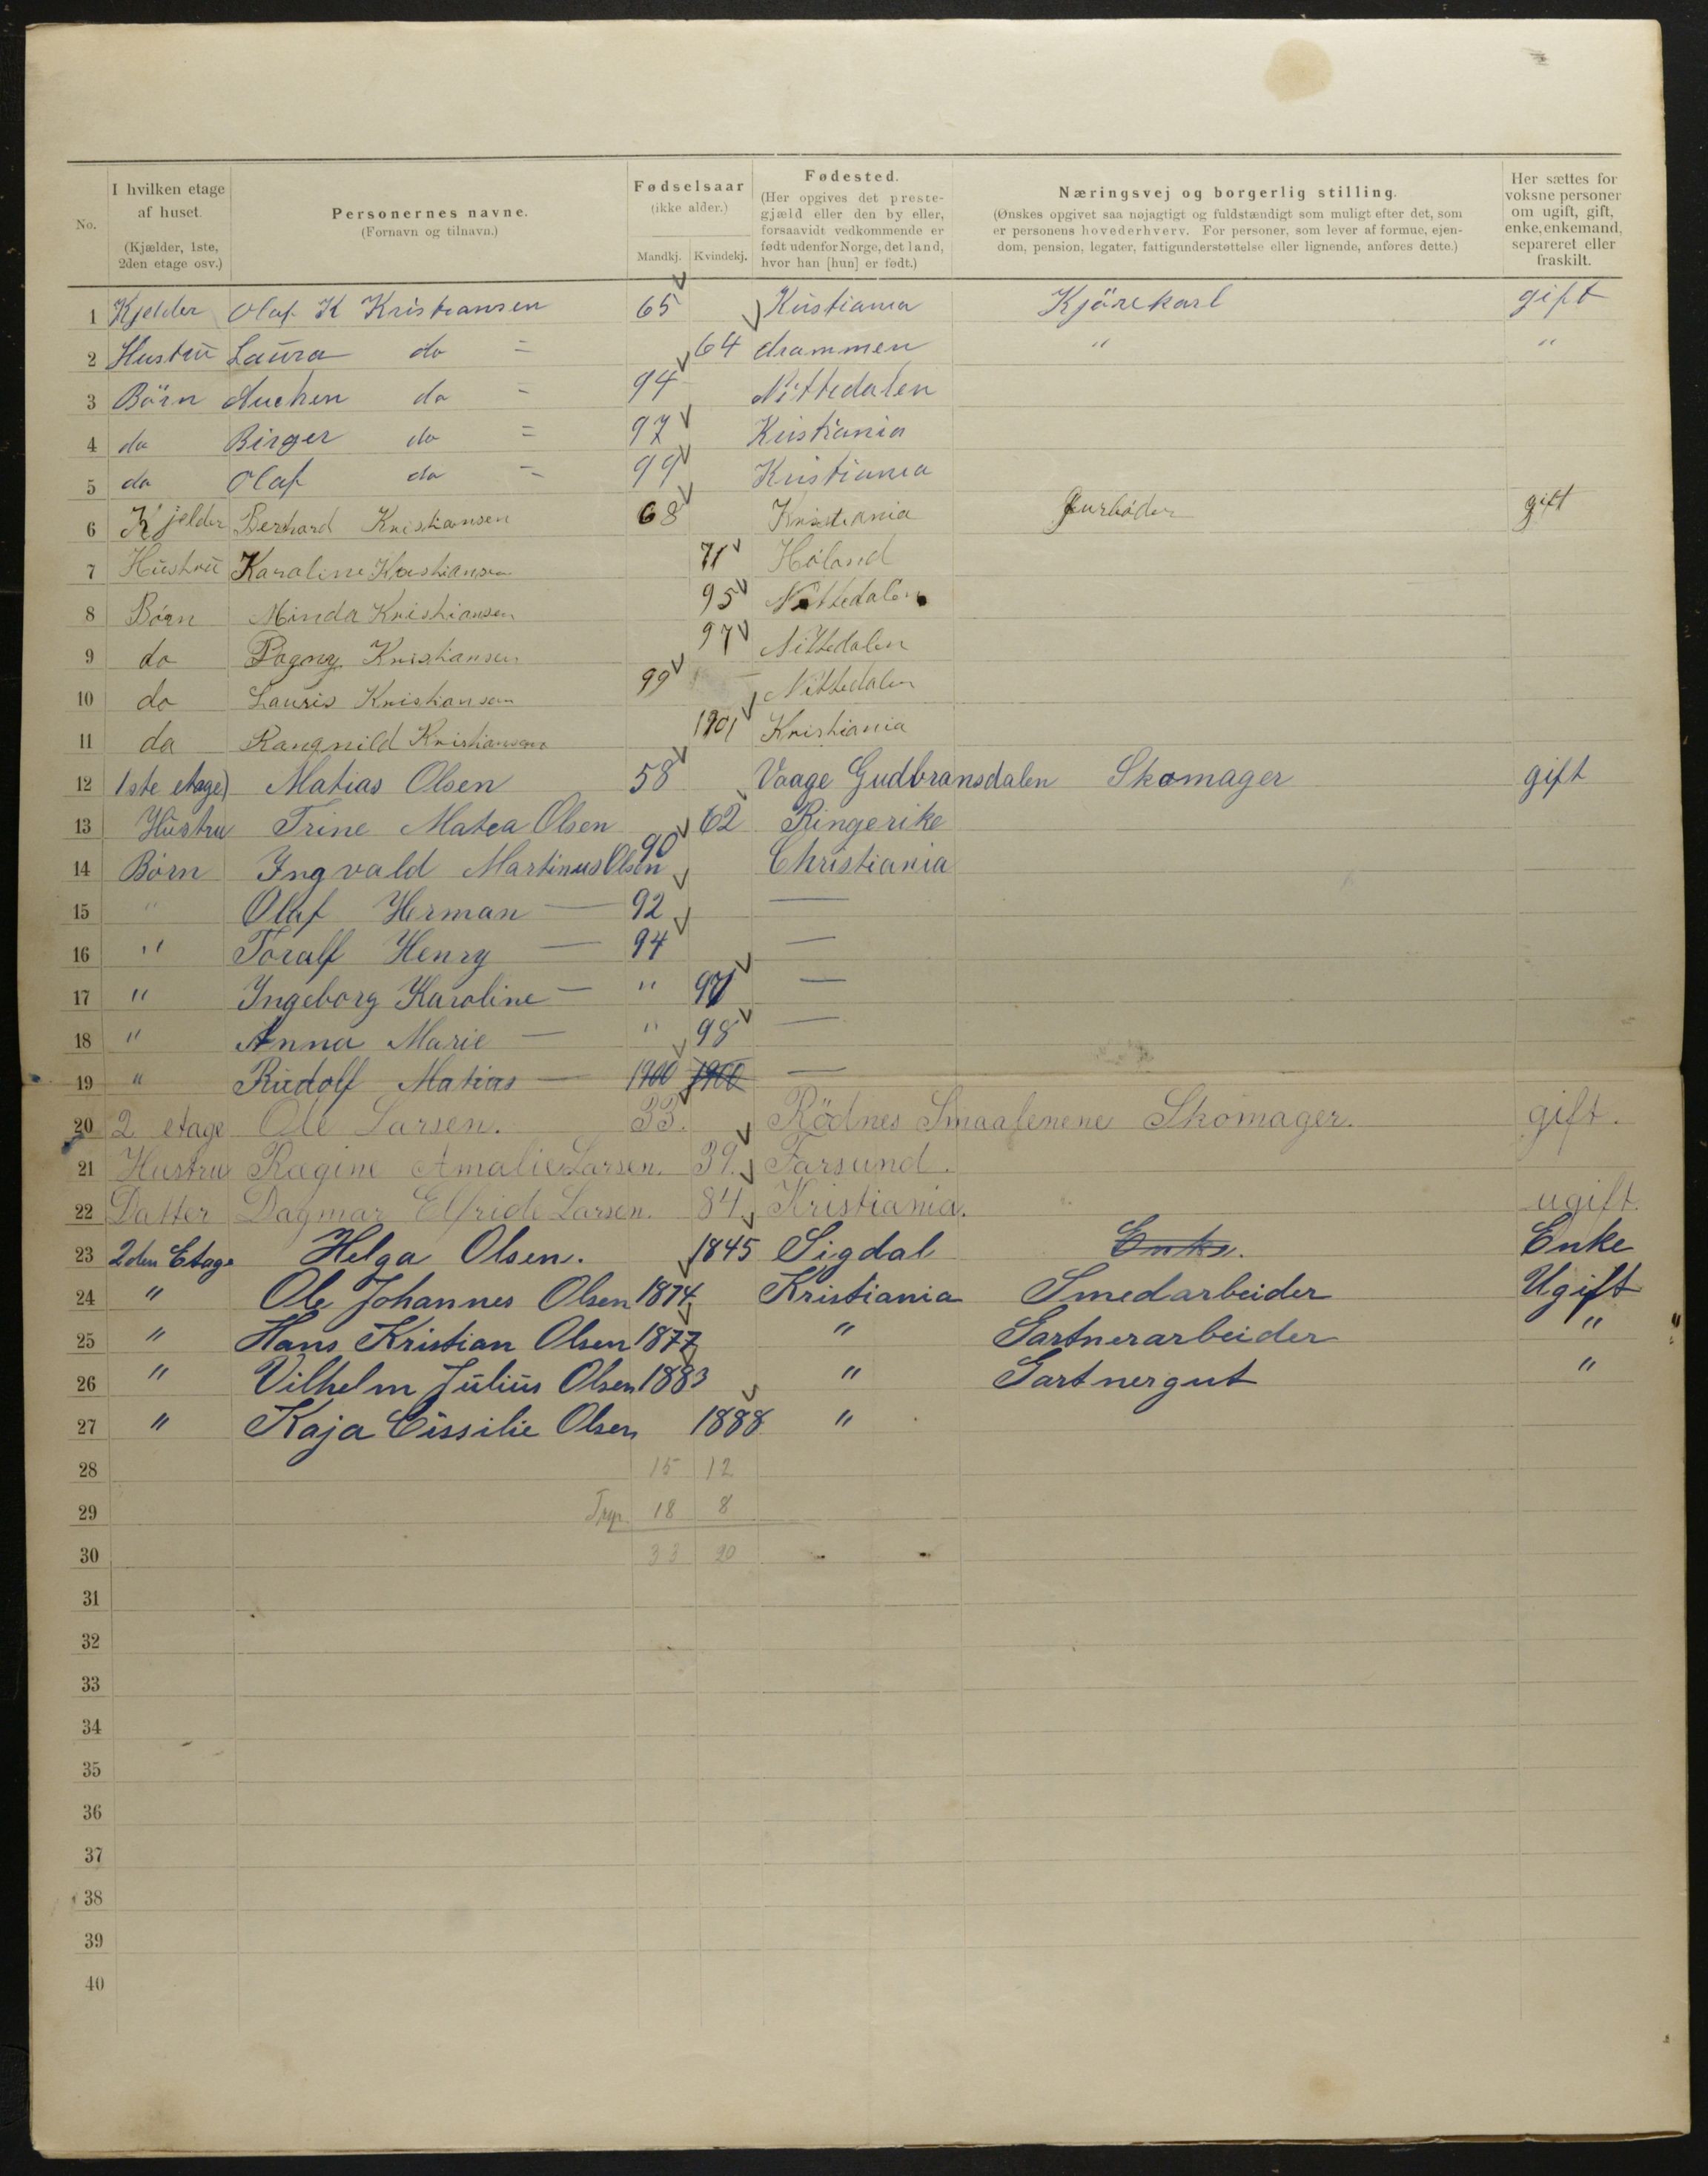 No.
I hvilken etage af huset.
(Kjælder, 1ste, 2den etage osv.)
Personernes navne.
(Fornavn og tilnavn.)
Fødselsaar
(ikke alder.)
Mandkj. Kvindekj.
Fødested.
(Her opgives det preste-
gjæld eller den by eller,
forsaavidt vedkommende er
født udenfor Norge, det land,
hvor han [hun] er født.)
Næringsvej og borgerlig stilling.
(Ønskes opgivet saa nøjagtigt og fuldstændigt som muligt efter det, som
er personens hovederhverv. For personer, som lever af formue, ejen-
dom, pension, legater, fattigunderstøttelse eller lignende, anføres dette.)
Her sættes for
voksne personer
om ugift, gift,
enke, enkemand,
separeret eller
fraskilt.
1 Kjelder Olaf K Kristiansen 65 Kristiania Kjörekarl gift
2 Hustru Laura do = 64 drammen " "
3 Börn do = 94 Nittedalen
4 do Birger do = 97 Kristiania
5 do Olaf do = 99 Kristiania
6 Kjelder Berhard Kristiansen 68 Kristiania gift
7 Hustru Karoline Kristiansen 71 Höland
8 Börn Minda Kristiansen 95 Nittedalen
9 do Kristiansen 97 Nittedalen
10 do Lauris Kristiansen 99 Nittedalen
11 do Rangnild Kristiansen 1901 Kristiania
12 1ste etage) Matias Olsen 58 Vaage Gudbransdalen Skomager gift
13 Hustru Trine Matea Olsen 62 Ringerike
14 Börn Ingvald Martinus Olsen 90 Christiania
15 " Olaf Herman — 92 —
16 " Toralf Henry — 94 —
17 " Ingeborg Karoline — " 97 —
18 " Anna Marie — " 98 —
19 " Rudolf Matias — 1900 1900 —
20 2 etage Ole Larsen. 33. Rödnes Smaalenene Skomager. gift.
21 Hustru Ragine Amalie Larsen. 39. Farsund.
22 Datter Dagmar Elfride Larsen. 84. Kristiania. ugift.
23 2den Etage Helga Olsen. 1845 Sigdal Enke. Enke
24 " Ole Johannes Olsen 1874 Kristiania Smedarbeider Ugift
25 " Hans Kristian Olsen 1877 " Gartnerarbeider "
26 " Vilhelm Julius Olsen 1883 " Gartnergut "
27 " Kaja Cissilie Olsen 1888 "
28 15 12
29 18 8
30 33 20
31
32
33
34
35
36
37
38
39
40